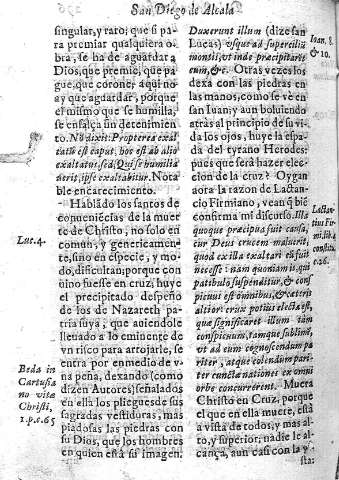 San Diego de Alcala
singular, y raro; que si pa-
ra premiar qualquiera o-
bra, se ha de aguardar a
Dios, que premie, que pa-
gue, que corone; aqui no
ay que aguardar, porque
el mismo que se humilla,
se ensalça sin detenimien-
to. Nō dixit: Propterea exal
tatus est caput, hoc est ab alio
exaltatus, sed, Qui se humilia
uerit, ipse exaltabitur. Nota
ble encarecimento.
Hablādo los santos de
conueniēcias de la muer
te de Christo, no solo en
comun, y genericamen-
te, sino en especie, y mo-
do, dificultan; porque con
uino fuesse en cruz, huye
el precipitado despeño
de los de Nazareth pa-
tria suya, que auiendole
lleuado a lo eminente de
vn risco para arrojarle, se
entra por en medio de v-
na peña, dexando (como
dizen Autores) señalados
en ella los pliegues de sus
sagradas vestiduras, mas
piadosas las piedras con
su Dios, que los hombres
en quien está su imagen.
Luc. 4.
Beda in
Cartusia
no vitæ
Christi,
1.p.c.65
Duxerunt illum (dize san
Lucas) vsque ad supercilium
montis, vt inde præcipitarēt
eum, &c. Otras vezes los
dexa con las piedras en
las manos, como se vè en
san Iuan; y aun boluiendo
atras al principio de su vi-
da los ojos, huye la espa-
da del tyrano Herodes:
pues que serà hazer elec-
cion de la cruz? Oygan
aora la razon de Lactan-
cio Firmiano, vean q̄ biē
confirma mi discurso. Illa
quoque præcipua fuit causa,
cur Deus crucem maluerit,
quod ex illa exaltari eū fuit
necesse: nam quoniam is, qui
patibulo suspenditur, & con-
spicuus est omnibus, & cæteris
altior: crux potius electa est,
quæ significaret illum tàm
conspicuum, tamque sublimē,
vt ad eum cognoscendum pa
riter, atque colendum pari-
ter cunctæ nationes ex omni
orbe concurrerent. Muera
Christo en Cruz, porque
el que en ella muere, està
a vista de todos, y mas al-
to, y superior; nadie le al-
cança, aun casi con la vi-
sta:
Ioan. 8.
& 10.
Lactan-
tius Fir-
mi.
c.26.